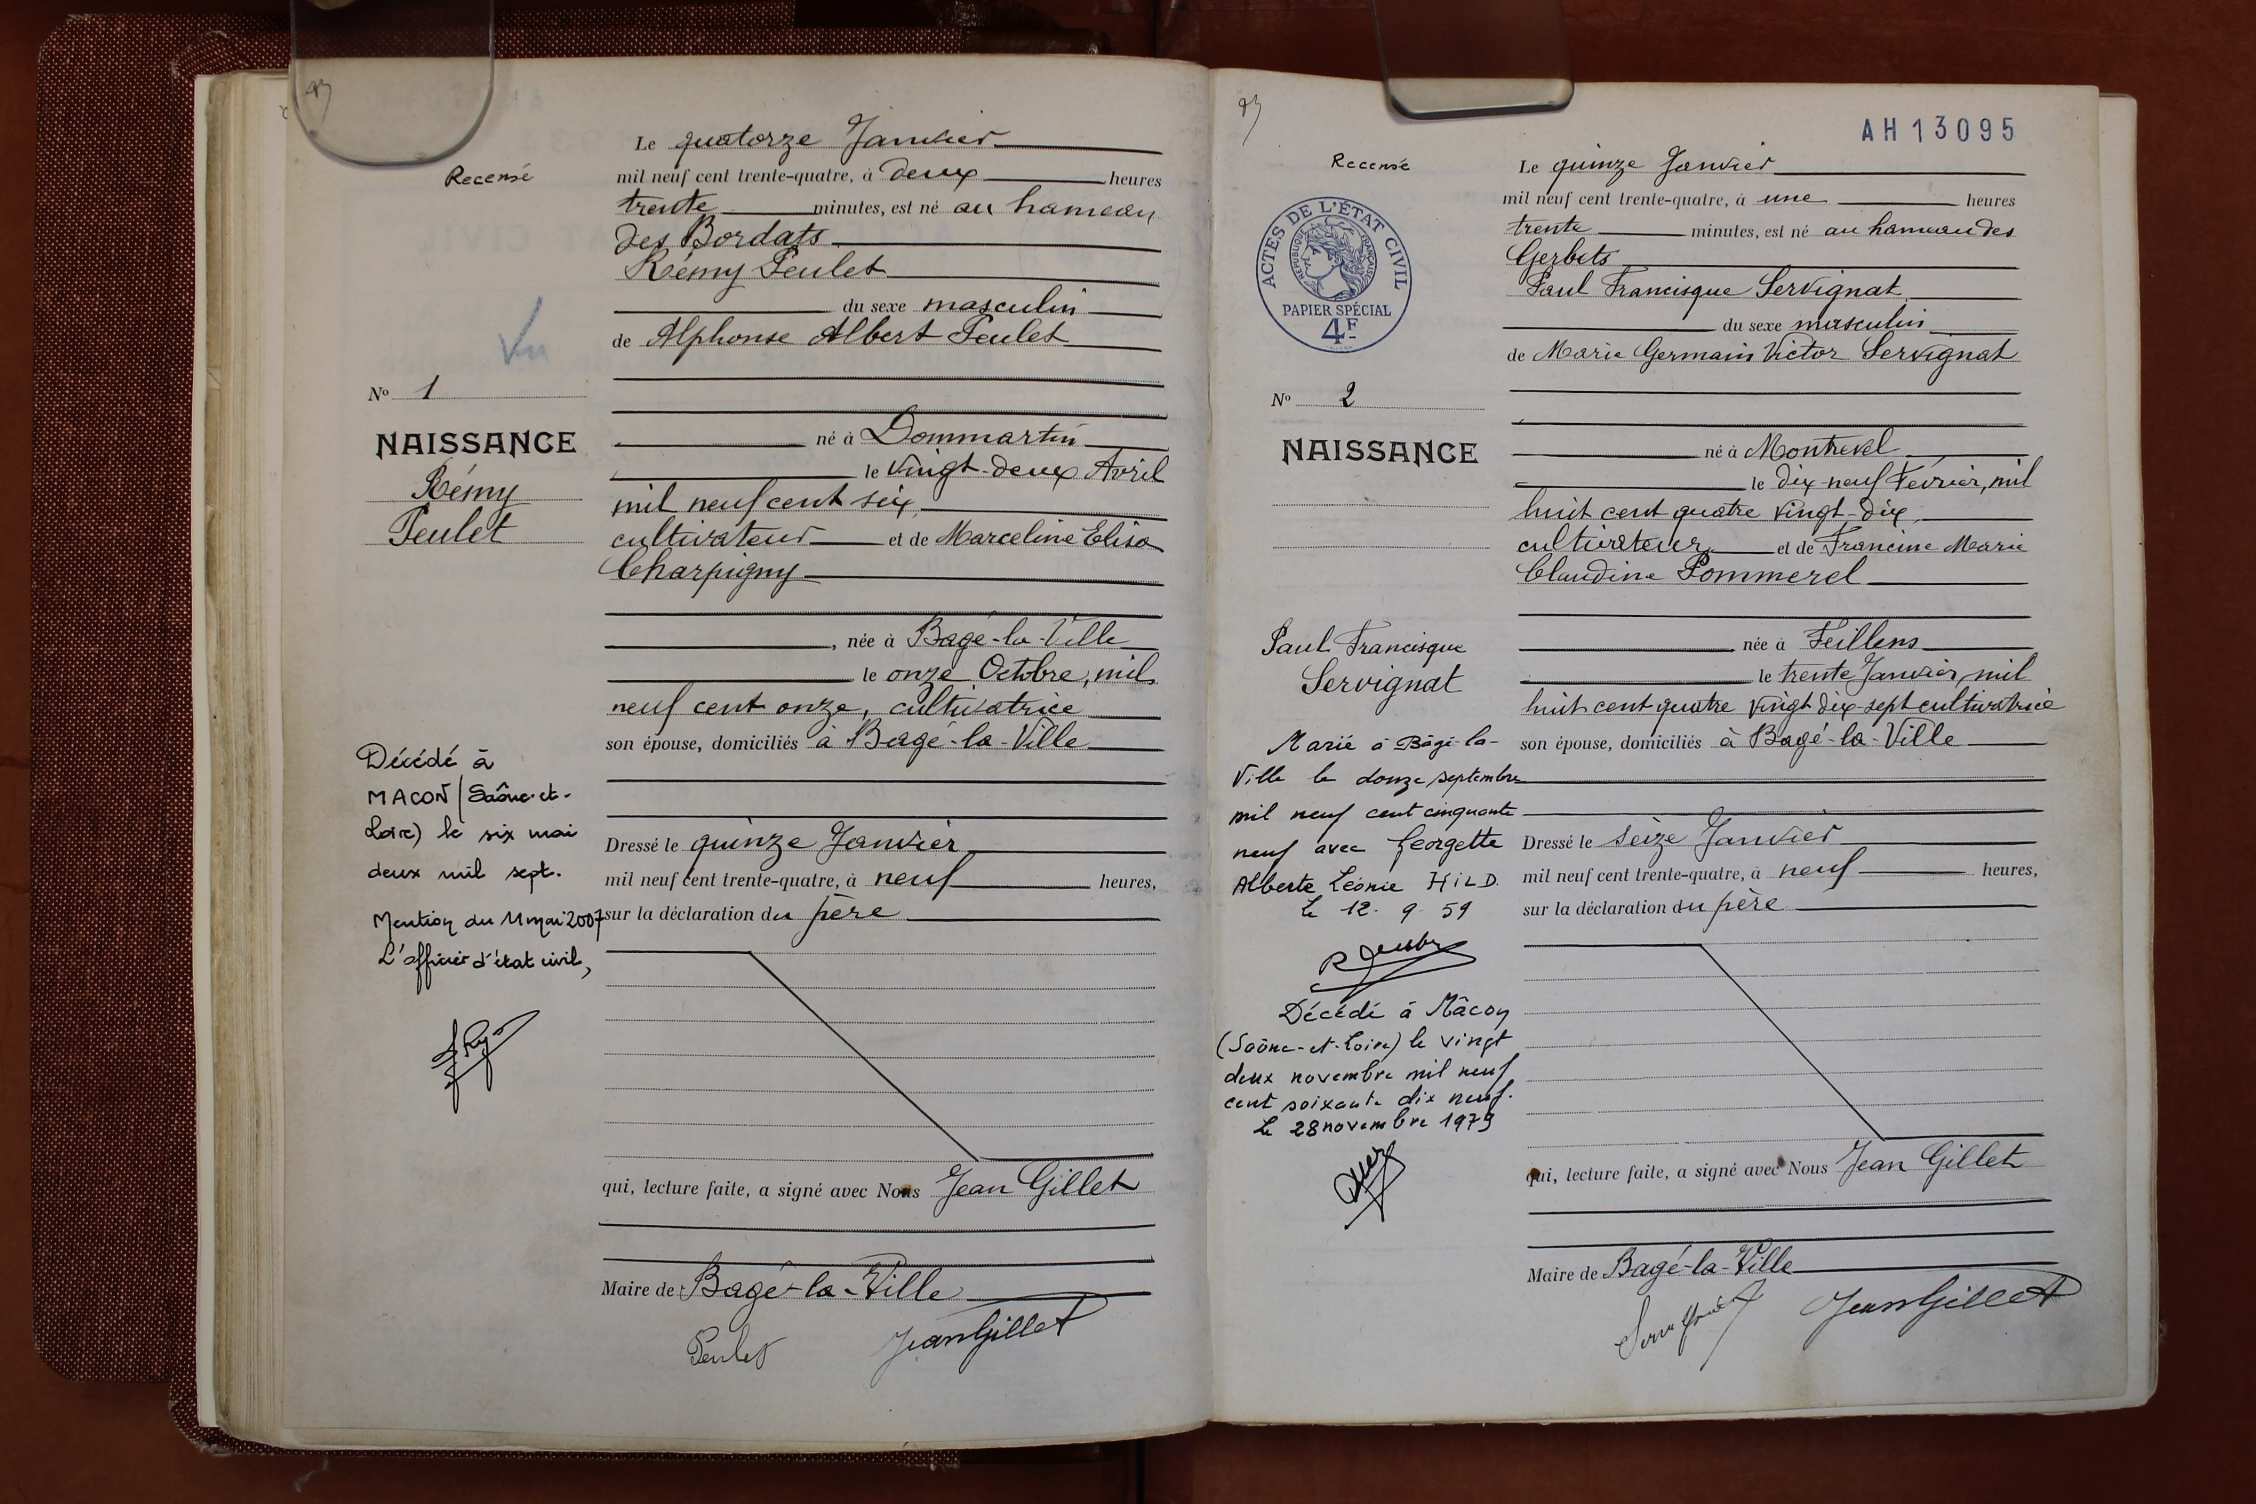 Recensé
Le quatorze Janvier
mil neuf cent trente-quatre, à deux heures
trente minutes, est né au hameau
des Bordats
Rémy Peulet
du sexe masculin
de Alphonse Albert Peulet
Vu
No 1
NAISSANCE
Rémy
Peulet
né à Dommartin
le vingt-deux Avril
mil neuf cent six
cultivateur et de Marceline Elisa
Charpigny
, née à Bagé-la-Ville
le onze Octobre, mil
neuf cent onze, cultivatrice
son épouse, domiciliés à Bagé-la-Ville
Décédé à
MACON (Saône-et-
Loire) le six mai
deux mil sept.
Mention du 11 mai 2007
L'officier d'état civil,
Dressé le quinze Janvier
mil neuf cent trente-quatre, à neuf heures,
sur la déclaration du père
qui, lecture faite, a signé avec Nous Jean Gillet
Maire de Bagé-la-Ville
Peulet
Jean Gillet
AH13095
Recensé
ACTES DE L'ÉTAT CIVIL
RÉPUBLIQUE FRANÇAISE
PAPIER SPÉCIAL
4F
Le quinze Janvier
mil neuf cent trente-quatre, à une heures
trente minutes, est né au hameau des
Gerbets
Paul Francisque Servignat
du sexe masculin
de Marie Germain Victor Servignat
No 2
NAISSANCE
né à Montrevel
le dix-neuf Février, mil
huit cent quatre vingt-dix,
cultivateur et de Francine Marie
Claudine Pommerel
née à Feillens
le trente Janvier, mil
huit cent quatre vingt dix-sept cultivatrice
son épouse, domiciliés à Bagé-la-Ville
Paul Francisque
Servignat
Marié à Bâgé-la-
Ville le douze septembre
mil neuf cent cinquante
neuf avec Georgette
Alberte Léonie HILD.
Le 12. 9. 59
Décédé à Mâcon
(Saône-et-Loire) le vingt
deux novembre mil neuf
cent soixante dix neuf.
Le 28 novembre 1979
Dressé le seize Janvier
mil neuf cent trente-quatre, à neuf heures,
sur la déclaration du père
qui, lecture faite, a signé avec Nous Jean Gillet
Maire de Bagé-la-Ville
Jean Gillet